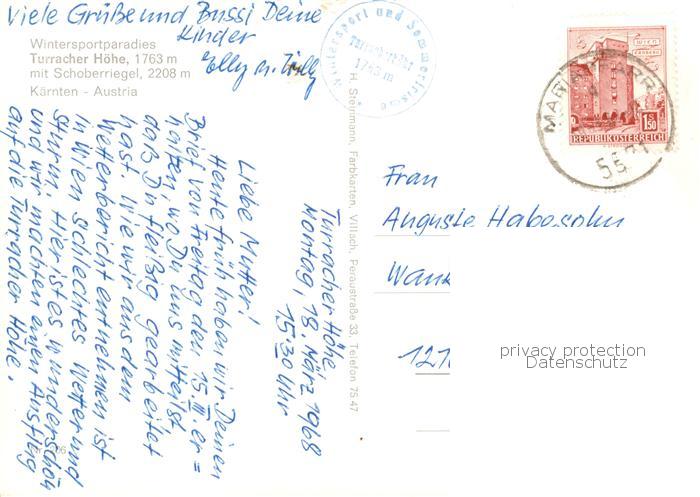 Viele Grüße und Bussi Deine
Kinder
Elly u. Willy
Wintersportparadies
Turracher Höhe, 1763 m
mit Schoberriegel, 2208 m
Kärnten - Austria
Turracher Höhe
Montag, 18. März 1968
15:30 Uhr
Liebe Mutter!
Heute früh haben wir Deinen
Brief von Freitag den 15.III. er=
halten, wo Du uns mitteilst
daß Du fleißig gearbeitet
hast. Wie wir aus dem
Wetterbericht entnehmen ist
in Wien schlechtes Wetter und
Sturm. Hier ist es wunderschön
und wir machten einen Ausflug
auf die Turracher Höhe.
H. Steinmann, Farbkarten, Villach, Peraustraße 33, Telefon 75 47
Wintersport und Sommerfrische
Turracherhöhe
1763 m
WIEN
ERDBERG
1S50
REPUBLIK ÖSTERREICH
MARIAPFARR
5571
Frau
Auguste Habesohn
Wank
121
privacy protection
Datenschutz